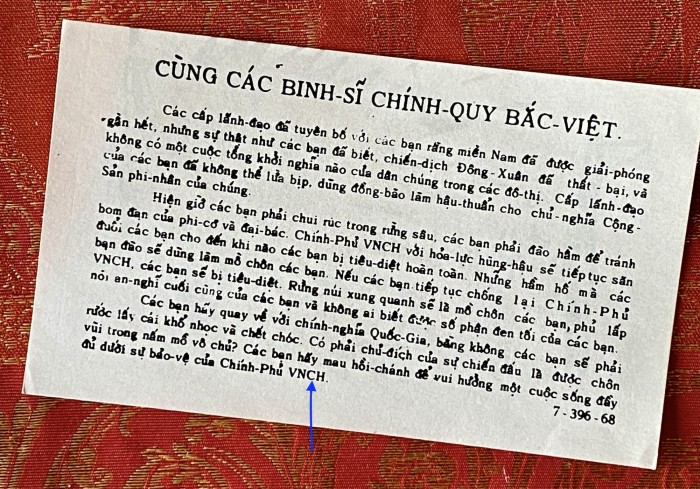 CÙNG CÁC BINH-SĨ CHÍNH-QUY BẮC-VIỆT.
Các cấp lãnh-đạo đã tuyên bố với các bạn rằng miền Nam đã được giải-phóng
gần hết, nhưng sự thật như các bạn đã biết, chiến-dịch Đông-Xuân đã thất-bại, và
không có một cuộc tổng khởi nghĩa nào của dân chúng trong các đô-thị. Cấp lãnh-đạo
của các bạn đã không thể lừa bịp, dũng đồng-bào làm hậu-thuẫn cho chủ-nghĩa Cộng-
Sản phi-nhân của chúng.
Hiện giờ các bạn phải chui rúc trong rừng sâu, các bạn phải đào hầm để tránh
bom đạn của phi-cơ và đại-bác. Chính-Phủ VNCH với hỏa-lực hùng-hậu sẽ tiếp-tục săn
đuổi các bạn cho đến khi nào các bạn bị tiêu-diệt hoàn toàn. Những hầm hố mà các
bạn đào sẽ dùng làm mồ chôn các bạn. Nếu các bạn tiếp tục chống lại Chính-Phủ
VNCH, các bạn sẽ bị tiêu-diệt. Rừng núi xung quanh sẽ là mồ chôn các bạn, phủ lấp
nơi an-nghỉ cuối cùng của các bạn và không ai biết được số phận đen tối của các bạn.
Các bạn hãy quay về với chính-nghĩa Quốc-Gia, bằng không các bạn sẽ phải
rước lấy cái khổ nhọc và chết chóc. Có phải chủ-đích của sự chiến đấu là được chôn
vùi trong nấm mồ vô chủ? Các bạn hãy mau hồi-chánh để vui hưởng một cuộc sống đầy
đủ dưới sự bảo-vệ của Chính-Phủ VNCH.
7-396-68